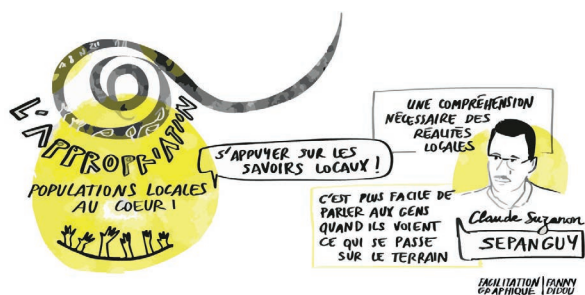 L'APPROPRIATION
POPULATIONS LOCALES
AU COEUR !
S'APPUYER SUR LES
SAVOIRS LOCAUX !
UNE COMPRÉHENSION
NÉCESSAIRE DES
RÉALITÉS
LOCALES
C'EST PLUS FACILE DE
PARLER AUX GENS
QUAND ILS VOIENT
CE QUI SE PASSE
SUR LE TERRAIN
Claude Suzanon
SEPANGUY
FACILITATION | FANNY
GRAPHIQUE | DIDOU